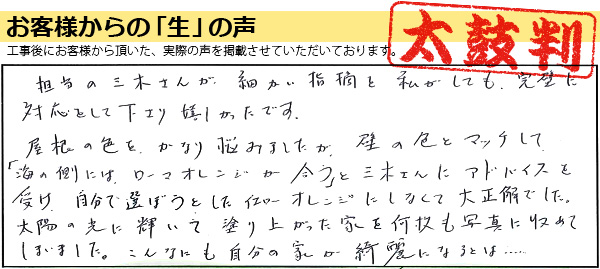 お客様からの「生」の声
工事後にお客様から頂いた、実際の声を掲載させていただいております。
太鼓判
担当の三木さんが、細かい指摘を私がしても、完璧に
対応をして下さり嬉しかったです。
屋根の色を、かなり悩みましたが、壁の色とマッチして、
「海の側には、ローマオレンジが合う」と三木さんにアドバイスを
受け、自分で選ぼうとしたイエローオレンジにしなくて大正解でした。
太陽の光に輝いて塗り上がった家を何枚も写真に収めて
しまいました。こんなにも自分の家が綺麗になるとは……